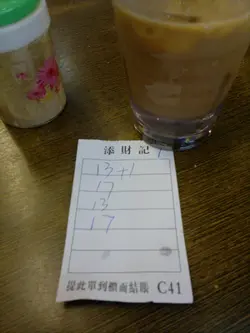 添財記
13+1
17
13
17
提此單到櫃面結賬 C41